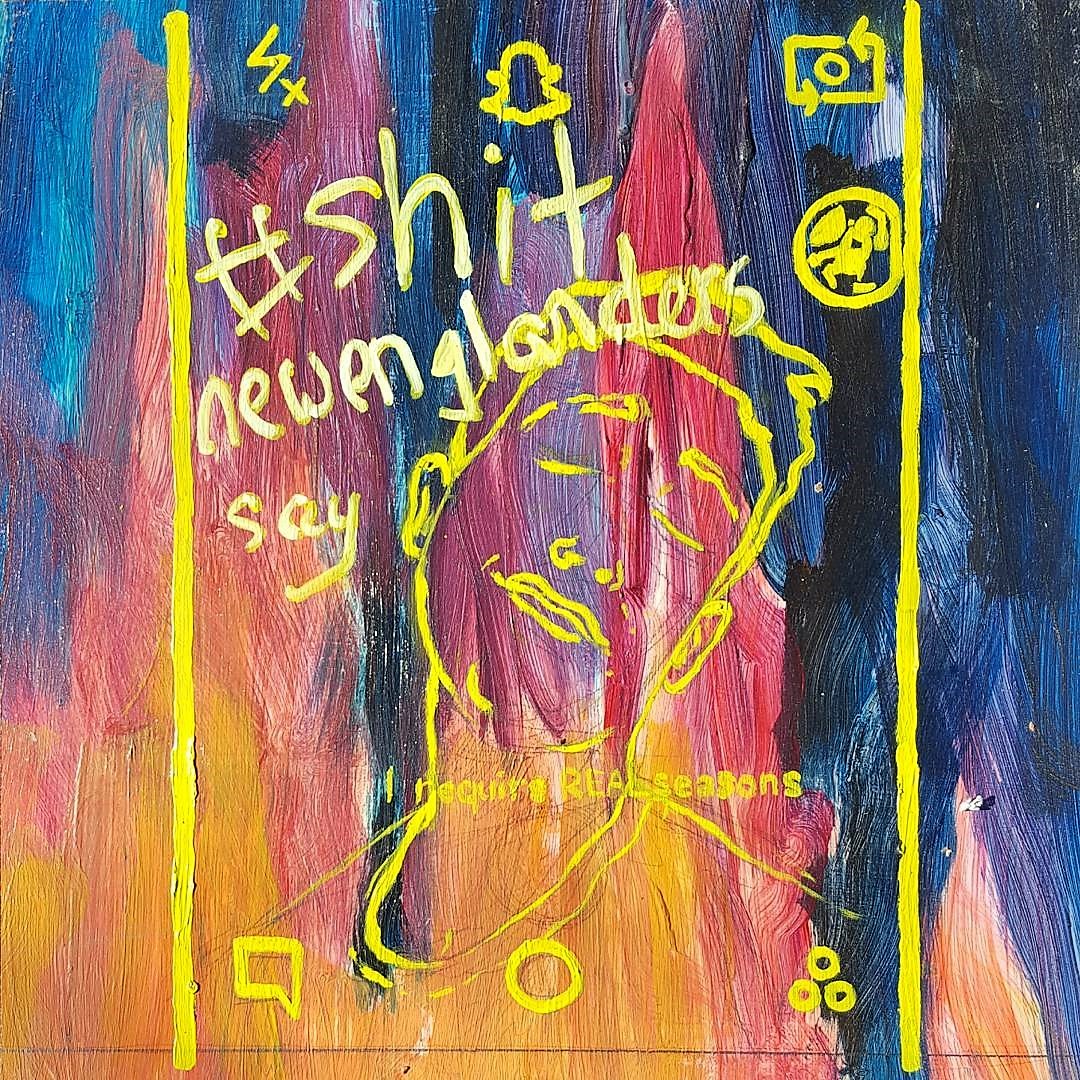 #shit
newenglanders
say
I require REAL seasons